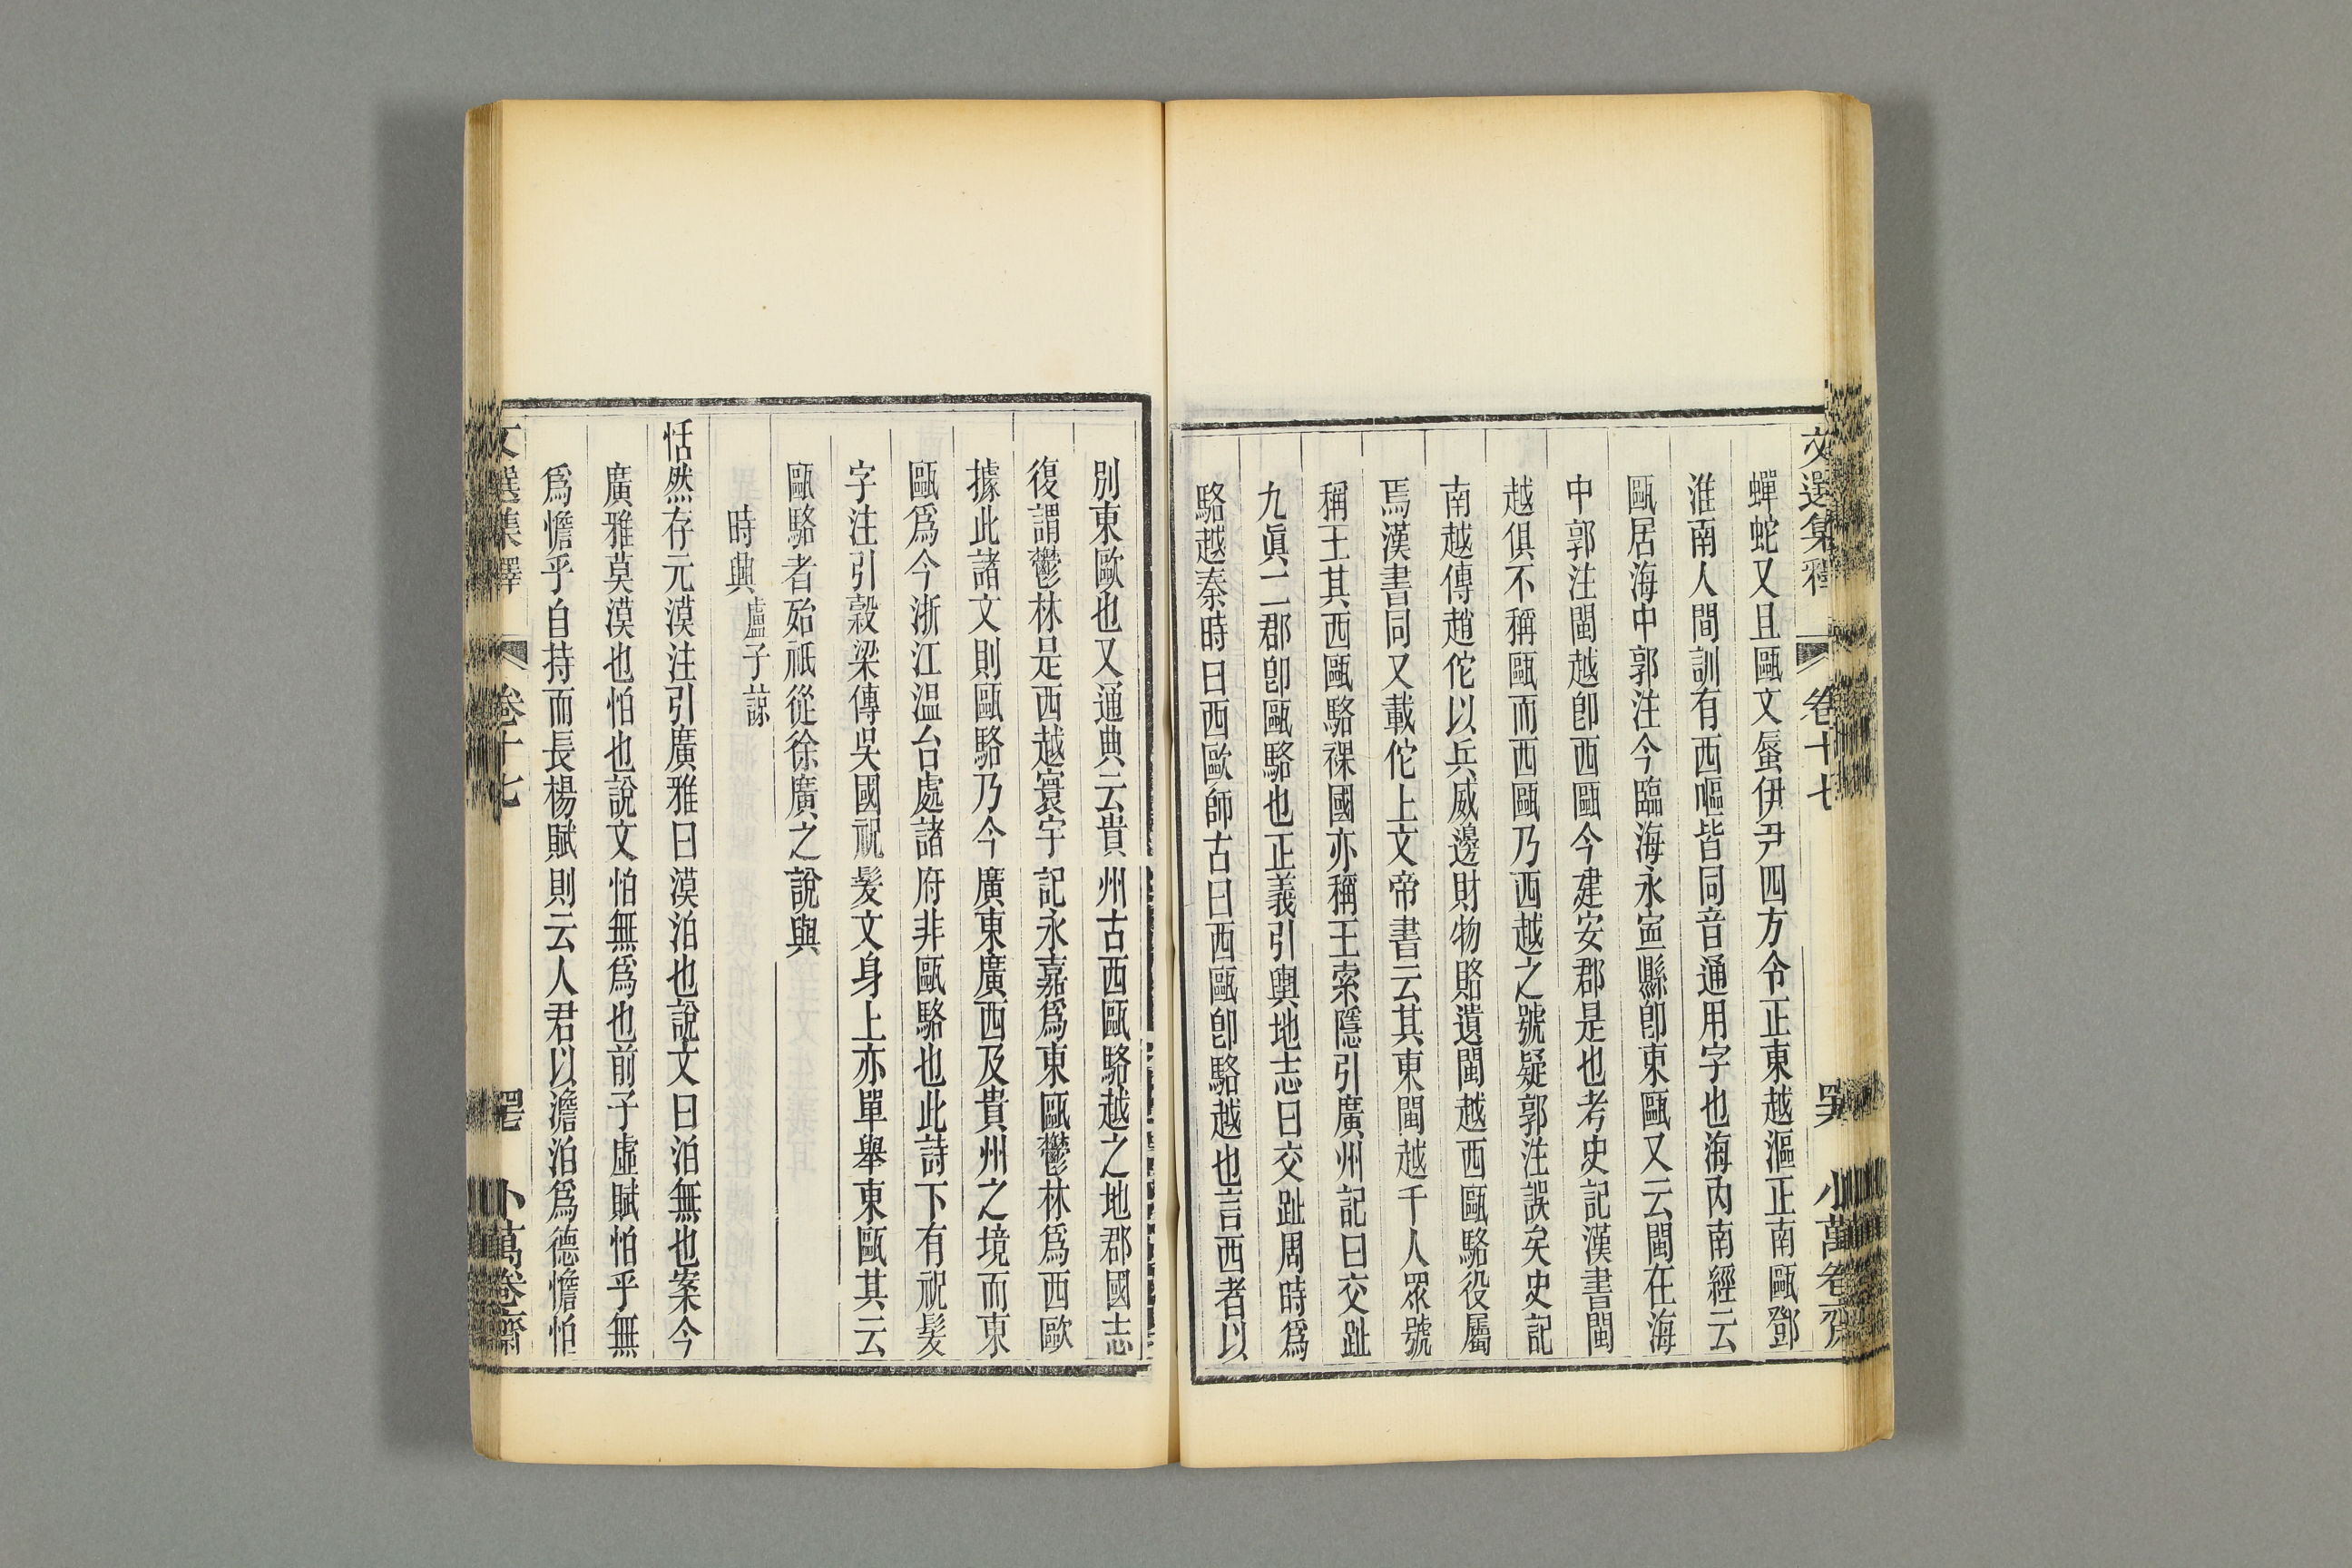 文選集釋 卷十七 吴 小萬卷齋
蟬蛇又且甌文蜃伊尹四方令正東越漚正南甌鄧
淮南人間訓有西嘔皆同音通用字也海內南經云
甌居海中郭注今臨海永寍縣卽東甌又云閩在海
中郭注閩越卽西甌今建安郡是也考史記漢書閩
越俱不稱甌而西甌乃西越之號疑郭注誤矣史記
南越傳趙佗以兵威邊財物賂遺閩越西甌駱役屬
焉漢書同又載佗上文帝書云其東閩越千人眾號
稱王其西甌駱裸國亦稱王索隱引廣州記曰交趾
九眞二郡卽甌駱也正義引輿地志曰交趾周時爲
駱越秦時曰西歐師古曰西甌卽駱越也言西者以
別東歐也又通典云貴州古西甌駱越之地郡國志
復謂鬱林是西越寰宇記永嘉爲東甌鬱林爲西歐
據此諸文則甌駱乃今廣東廣西及貴州之境而東
甌爲今浙江溫台處諸府非甌駱也此詩下有祝髮
字注引穀梁傳吳國祝髮文身上亦單舉東甌其云
甌駱者殆祇從徐廣之說與
時興 盧子諒
恬然存元漠注引廣雅曰漠泊也說文曰泊無也案今
廣雅莫漠也怕也說文怕無爲也前子虛賦怕乎無
爲憺乎自持而長楊賦則云人君以澹泊爲德憺怕
文選集釋 卷十七 小萬卷齋